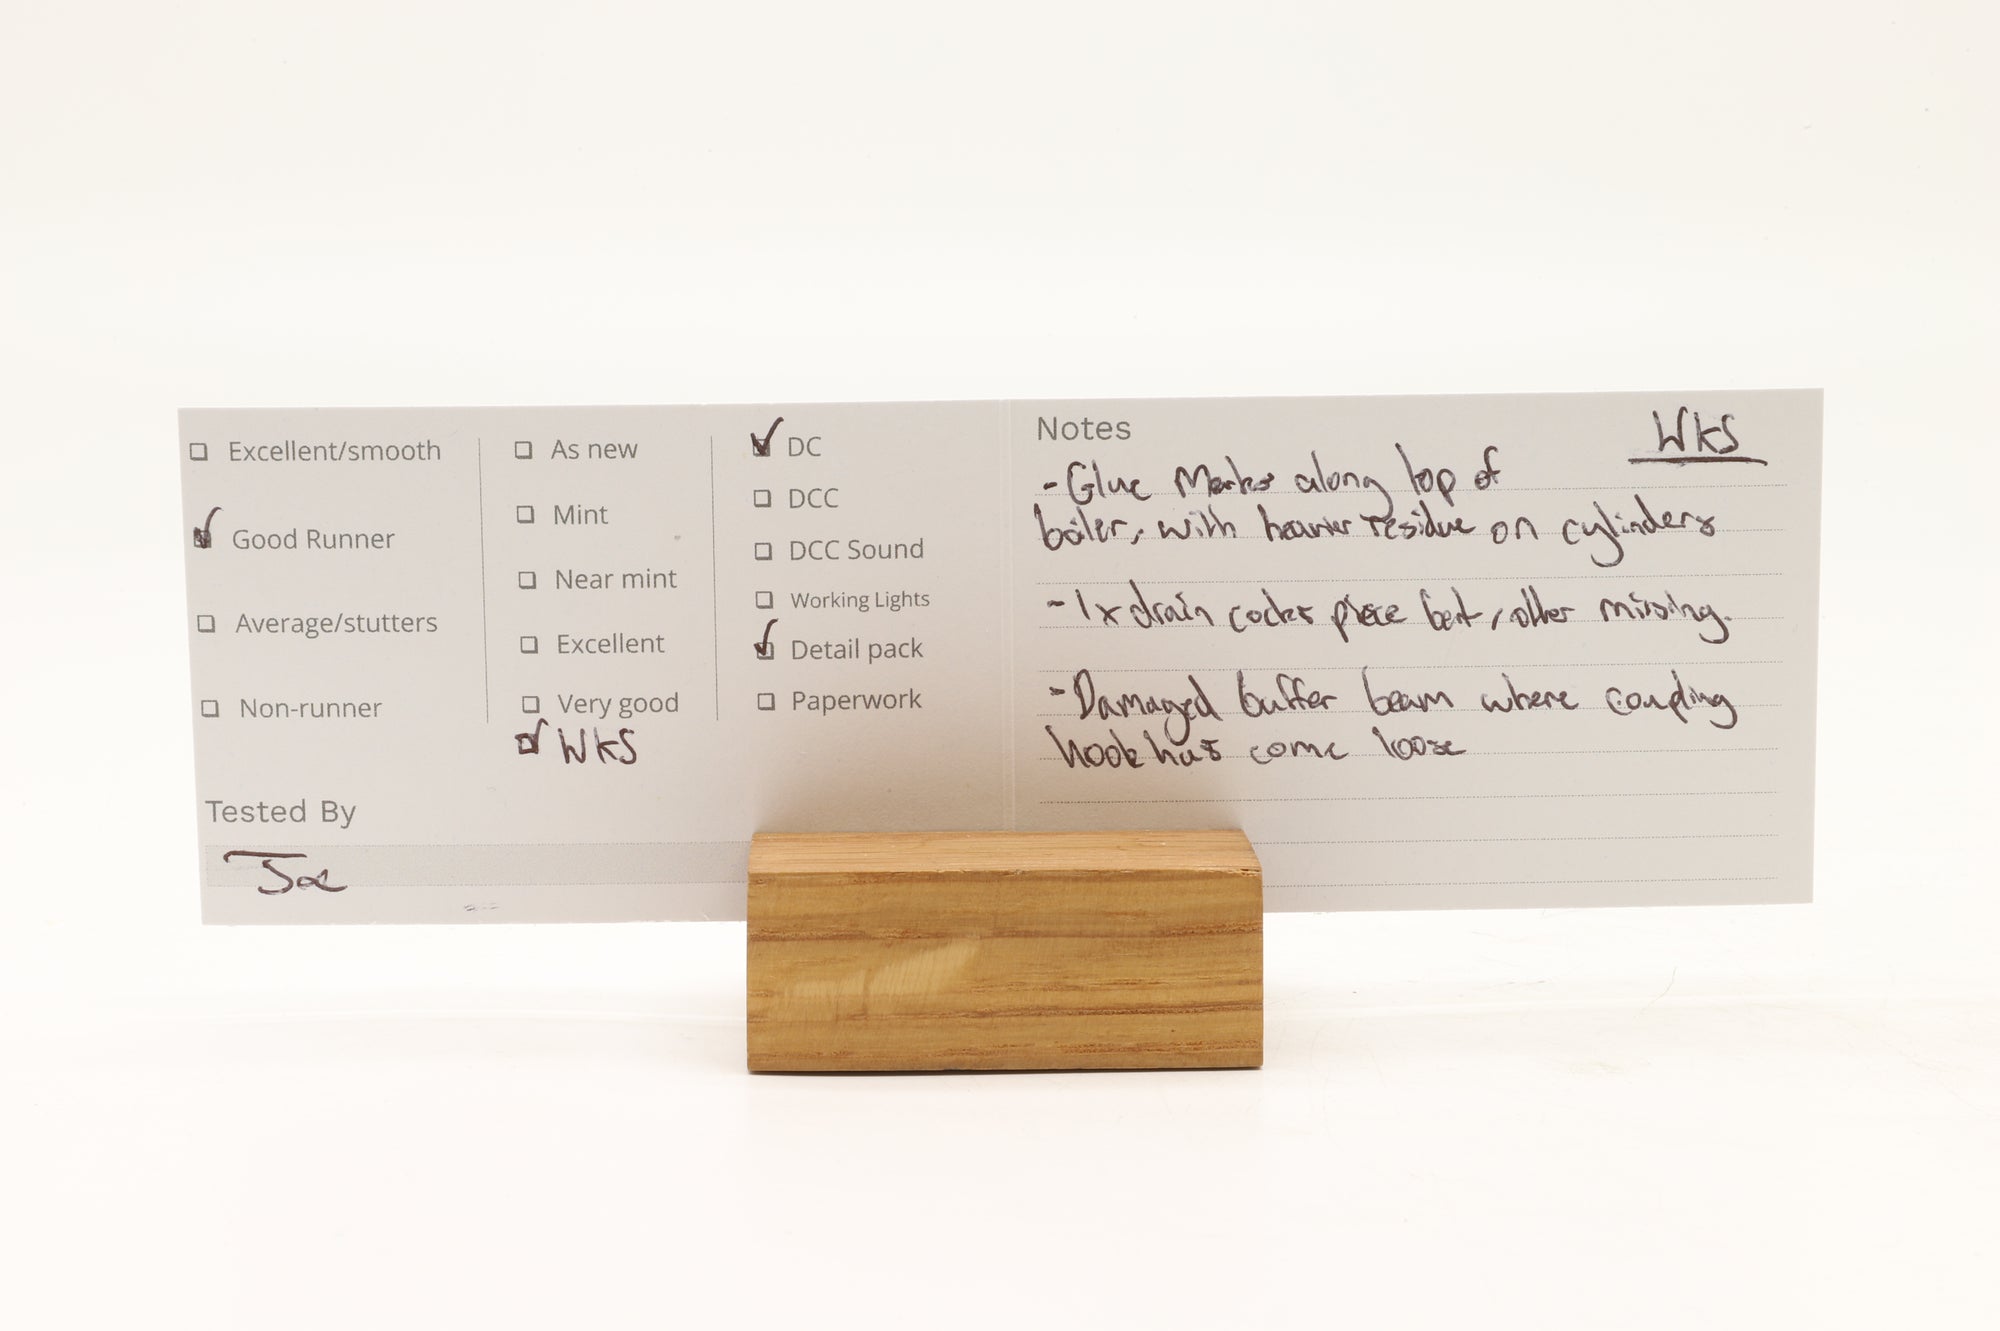 Excellent/smooth
Good Runner
Average/stutters
Non-runner
As new
Mint
Near mint
Excellent
Very good
WKS
DC
DCC
DCC Sound
Working Lights
Detail pack
Paperwork
Tested By
Joe
Notes
WKS
- Glue Marks along top of
boiler, with heavier residue on cylinders
- 1x drain cocks piece bent, other missing.
- Damaged buffer beam where coupling
hook has come loose